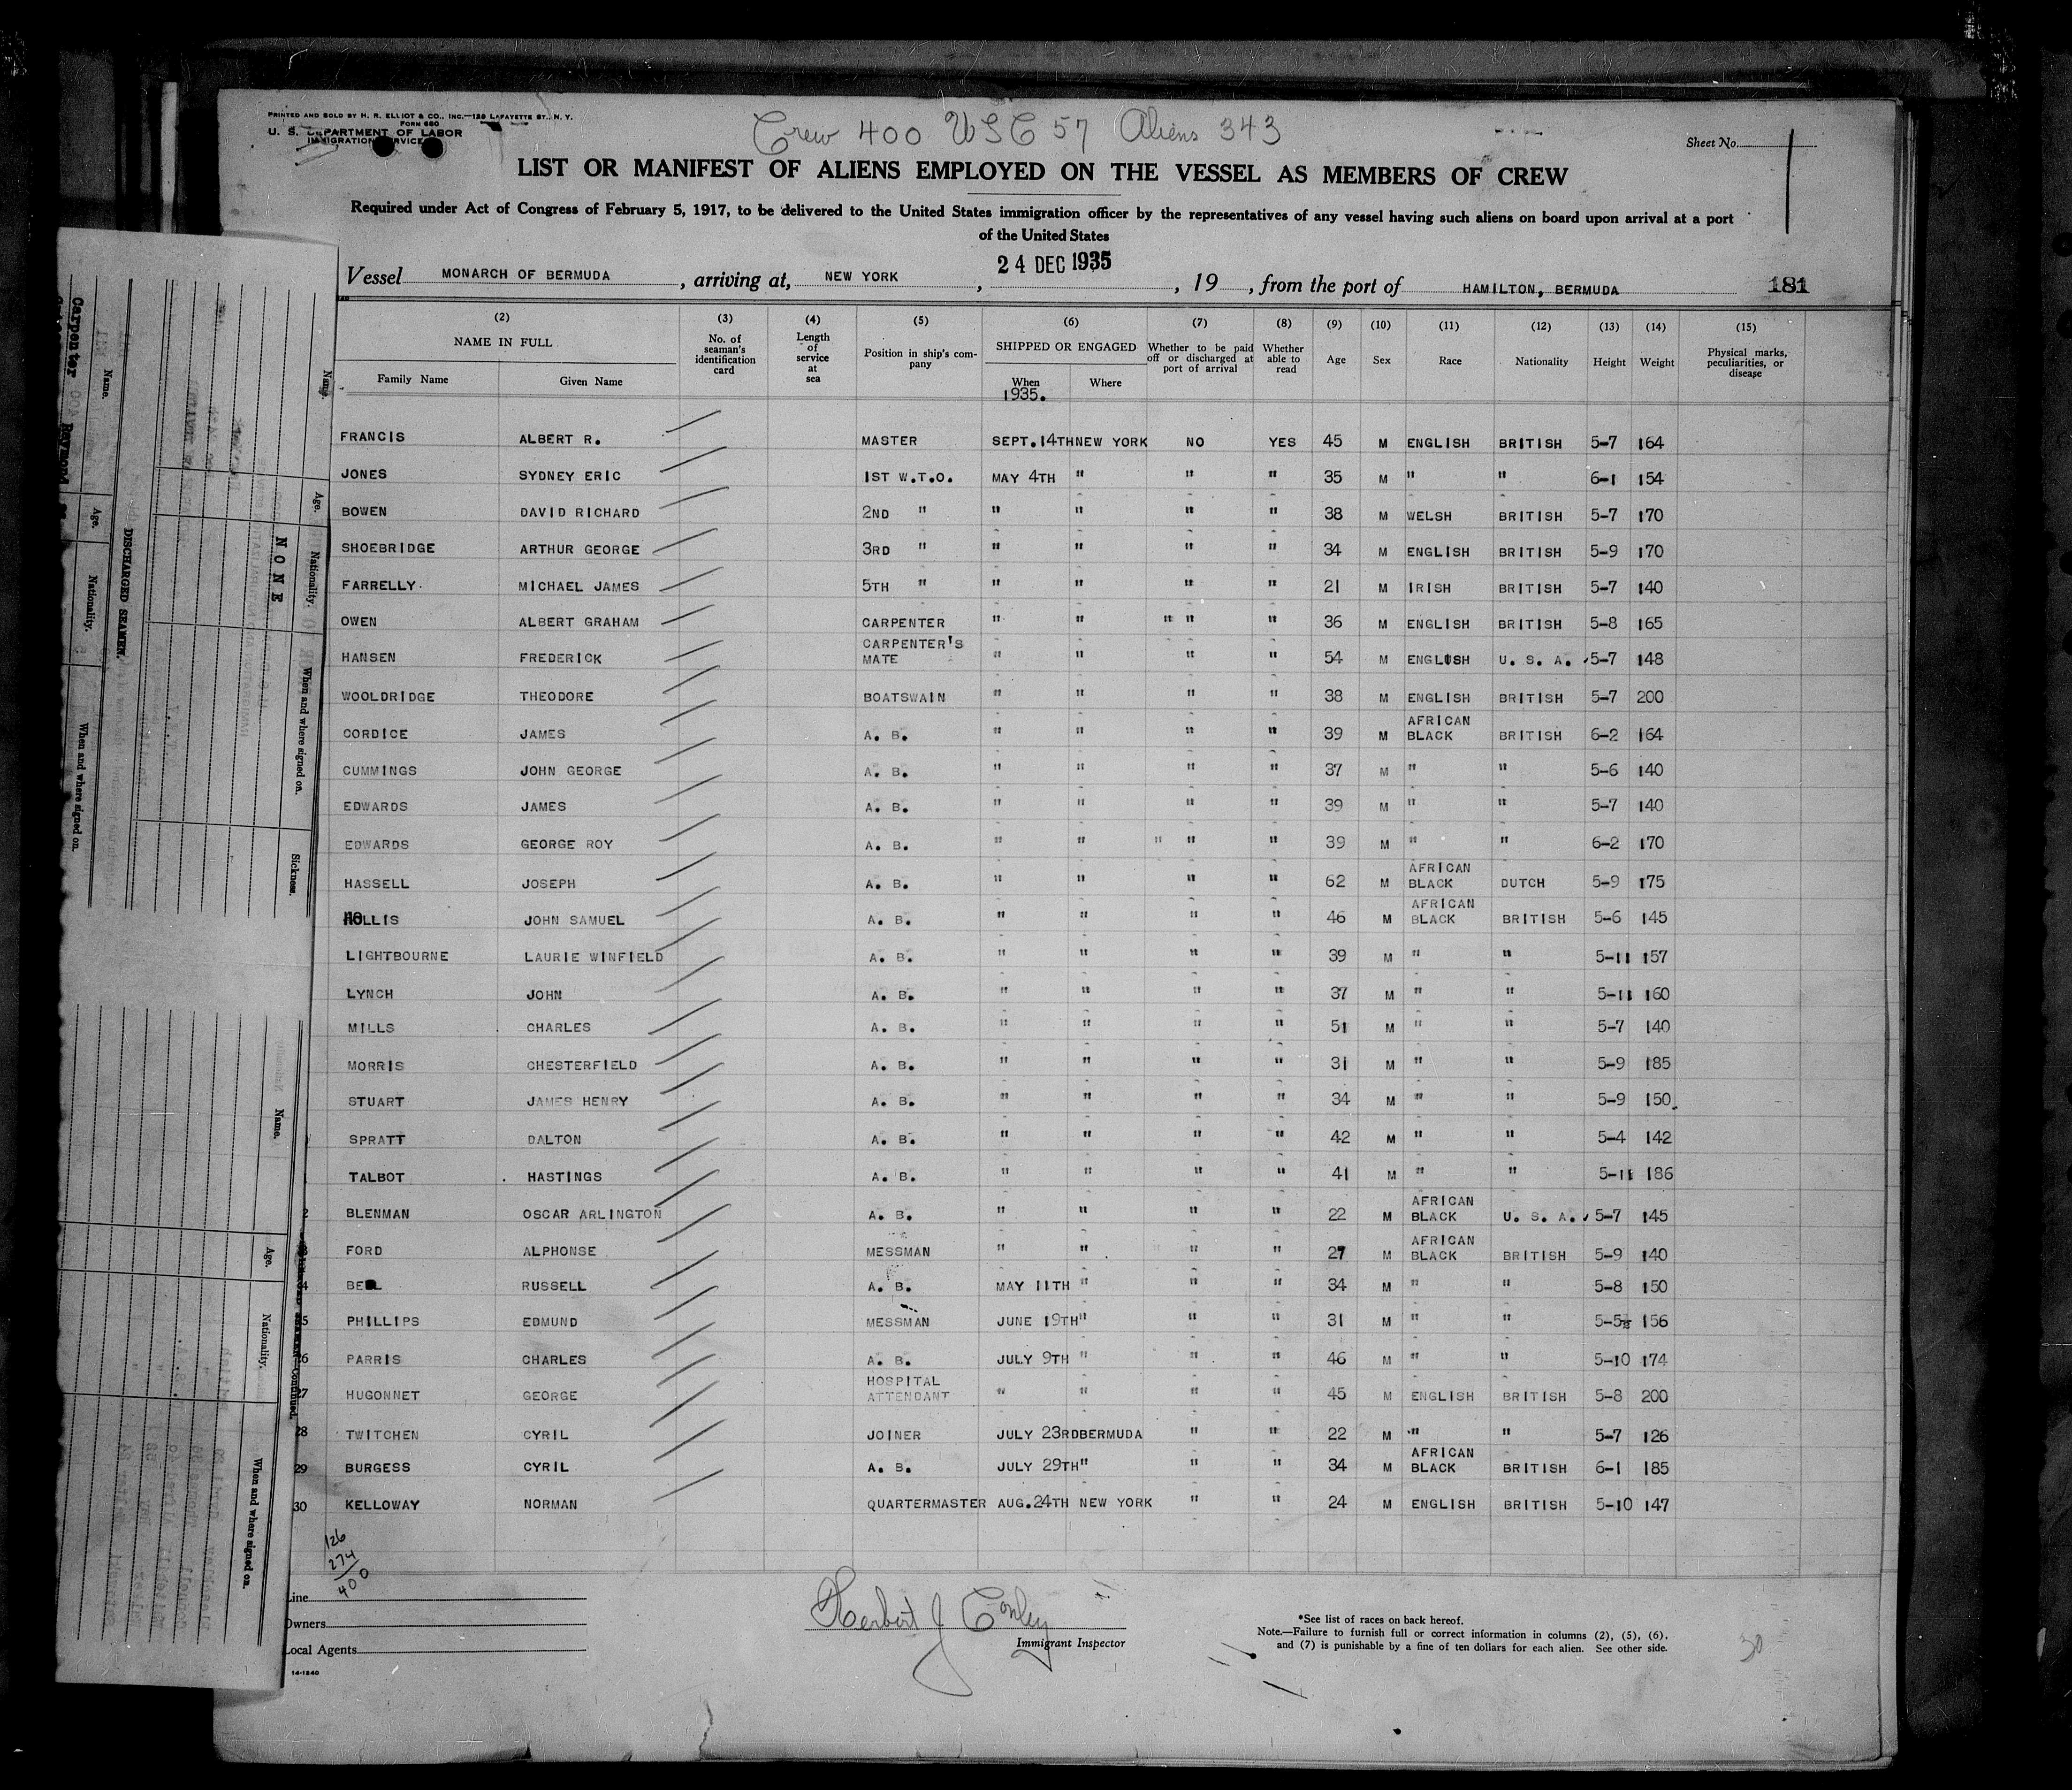 PRINTED AND SOLD BY H. R. ELLIOT & CO., INC.—129 LAFAYETTE ST., N. Y.
FORM 680
U. S. DEPARTMENT OF LABOR
IMMIGRATION SERVICE
Crew 400 USC 57 Aliens 343
Sheet No. 1
LIST OR MANIFEST OF ALIENS EMPLOYED ON THE VESSEL AS MEMBERS OF CREW
Required under Act of Congress of February 5, 1917, to be delivered to the United States immigration officer by the representatives of any vessel having such aliens on board upon arrival at a port
of the United States
Vessel MONARCH OF BERMUDA, arriving at, NEW YORK, 24 DEC 1935, 19 , from the port of HAMILTON, BERMUDA 181
(2) (3) (4) (5) (6) (7) (8) (9) (10) (11) (12) (13) (14) (15)
NAME IN FULL No. of seaman's identification card Length of service at sea Position in ship's company SHIPPED OR ENGAGED Whether to be paid off or discharged at port of arrival Whether able to read Age Sex Race Nationality Height Weight Physical marks, peculiarities, or disease
Family Name Given Name When Where
1935.
FRANCIS ALBERT R. MASTER SEPT.14TH NEW YORK NO YES 45 M ENGLISH BRITISH 5-7 164
JONES SYDNEY ERIC 1ST W.T.O. MAY 4TH " " " 35 M " " 6-1 154
BOWEN DAVID RICHARD 2ND " " " " " 38 M WELSH BRITISH 5-7 170
SHOEBRIDGE ARTHUR GEORGE 3RD " " " " " 34 M ENGLISH BRITISH 5-9 170
FARRELLY MICHAEL JAMES 5TH " " " " " 21 M IRISH BRITISH 5-7 140
OWEN ALBERT GRAHAM CARPENTER " " " " " 36 M ENGLISH BRITISH 5-8 165
HANSEN FREDERICK CARPENTER'S MATE " " " " 54 M ENGLISH U. S. A. ✓ 5-7 148
WOOLDRIDGE THEODORE BOATSWAIN " " " " 38 M ENGLISH BRITISH 5-7 200
CORDICE JAMES A. B. " " " " 39 M AFRICAN BLACK BRITISH 6-2 164
CUMMINGS JOHN GEORGE A. B. " " " " 37 M " " 5-6 140
EDWARDS JAMES A. B. " " " " 39 M " " 5-7 140
EDWARDS GEORGE ROY A. B. " " " " " 39 M " " 6-2 170
HASSELL JOSEPH A. B. " " " " 62 M AFRICAN BLACK DUTCH 5-9 175
HOLLIS JOHN SAMUEL A. B. " " " " 46 M AFRICAN BLACK BRITISH 5-6 145
LIGHTBOURNE LAURIE WINFIELD A. B. " " " " 39 M " " 5-11 157
LYNCH JOHN A. B. " " " " 37 M " " 5-11 160
MILLS CHARLES A. B. " " " " 51 M " " 5-7 140
MORRIS CHESTERFIELD A. B. " " " " 31 M " " 5-9 185
STUART JAMES HENRY A. B. " " " " 34 M " " 5-9 150
SPRATT DALTON A. B. " " " " 42 M " " 5-4 142
TALBOT HASTINGS A. B. " " " " 41 M " " 5-11 186
2 BLENMAN OSCAR ARLINGTON A. B. " " " " 22 M AFRICAN BLACK U. S. A. ✓ 5-7 145
3 FORD ALPHONSE MESSMAN " " " " 27 M AFRICAN BLACK BRITISH 5-9 140
4 BELL RUSSELL A. B. MAY 11TH " " " 34 M " " 5-8 150
5 PHILLIPS EDMUND MESSMAN JUNE 19TH " " " 31 M " " 5-5½ 156
26 PARRIS CHARLES A. B. JULY 9TH " " " 46 M " " 5-10 174
27 HUGONNET GEORGE HOSPITAL ATTENDANT " " " " 45 M ENGLISH BRITISH 5-8 200
28 TWITCHEN CYRIL JOINER JULY 23RD BERMUDA " " 22 M " " 5-7 126
29 BURGESS CYRIL A. B. JULY 29TH " " " 34 M AFRICAN BLACK BRITISH 6-1 185
30 KELLOWAY NORMAN QUARTERMASTER AUG.24TH NEW YORK " " 24 M ENGLISH BRITISH 5-10 147
126
274
400
Line
Owners
Local Agents
14-1240
Herbert J Conley
Immigrant Inspector
*See list of races on back hereof.
Note.—Failure to furnish full or correct information in columns (2), (5), (6),
and (7) is punishable by a fine of ten dollars for each alien. See other side.
30
Carpenter Raymond
Name. Age. Nationality. When and where signed on.
DISCHARGED SEAMEN.
NONE
Name. Age. Nationality. When and where signed on. Sickness.
Name. Age. Nationality. When and where signed on.
Continued.